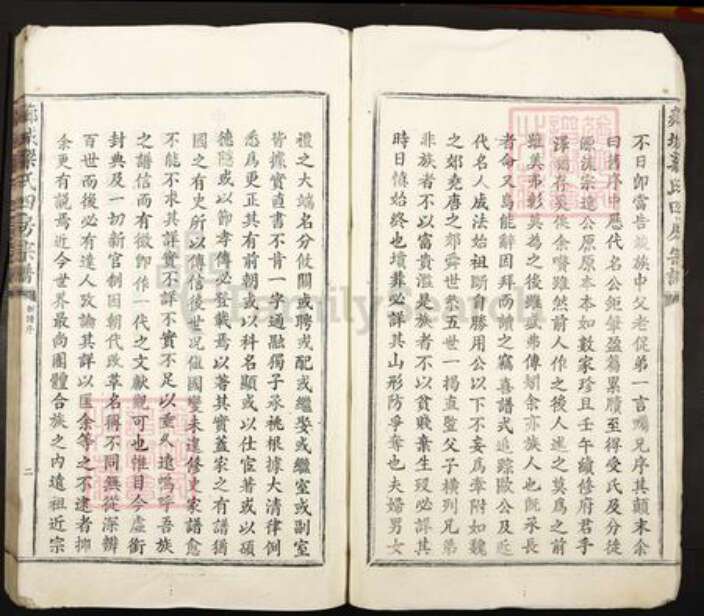 不日卽當告竣族中父老促弟一言囑兄序其顛末余
曰舊序中歷代名公鉅肇盈篇累牘至得受氏及分徙
源流宗遠公原原本本如數家珍且壬午續修府君手
澤猶存奚俟余贅雖然前人作之後人述之莫爲之前
雖美弗彰莫爲之後雖盛弗傳矧余亦族人也旣承長
者命又烏能辭因拜而讀之竊喜譜式追踪歐公及近
代名人成法始祖斷自勝用公以下不妄爲牽附如魏
之郊堯唐之郊舜世系五世一揭直豎父子橫列兄弟
非族者不以富貴濫是族者不以貧賤棄生歿必詳其
時日愼始終也墳葬必詳其山形防爭奪也夫婦男女
禮之大端名分攸關或聘或配或繼娶或繼室或副室
皆據實直書不肯一字通融獨子承祧根據大清律例
悉爲更正其有前朝或以科名顯或以仕宦著或以碩
德隱或以節孝傳必登載焉以著其實蓋家之有譜猶
國之有史所以傳信後世况值國變未遑修史家譜愈
不能不求其詳實不詳不實不足以垂久遠嗚呼吾族
之譜信而有徵卽作一代之文獻觀可也惟目今虛銜
封典及一切新官制因朝代改革名稱不同無從深辨
百世而後必有達人攷論其詳以匡余等之不逮者抑
余更有說焉近今世界最尚團體合族之內遠祖近宗
氏四房宗譜
新譜序
二
FamilySearch